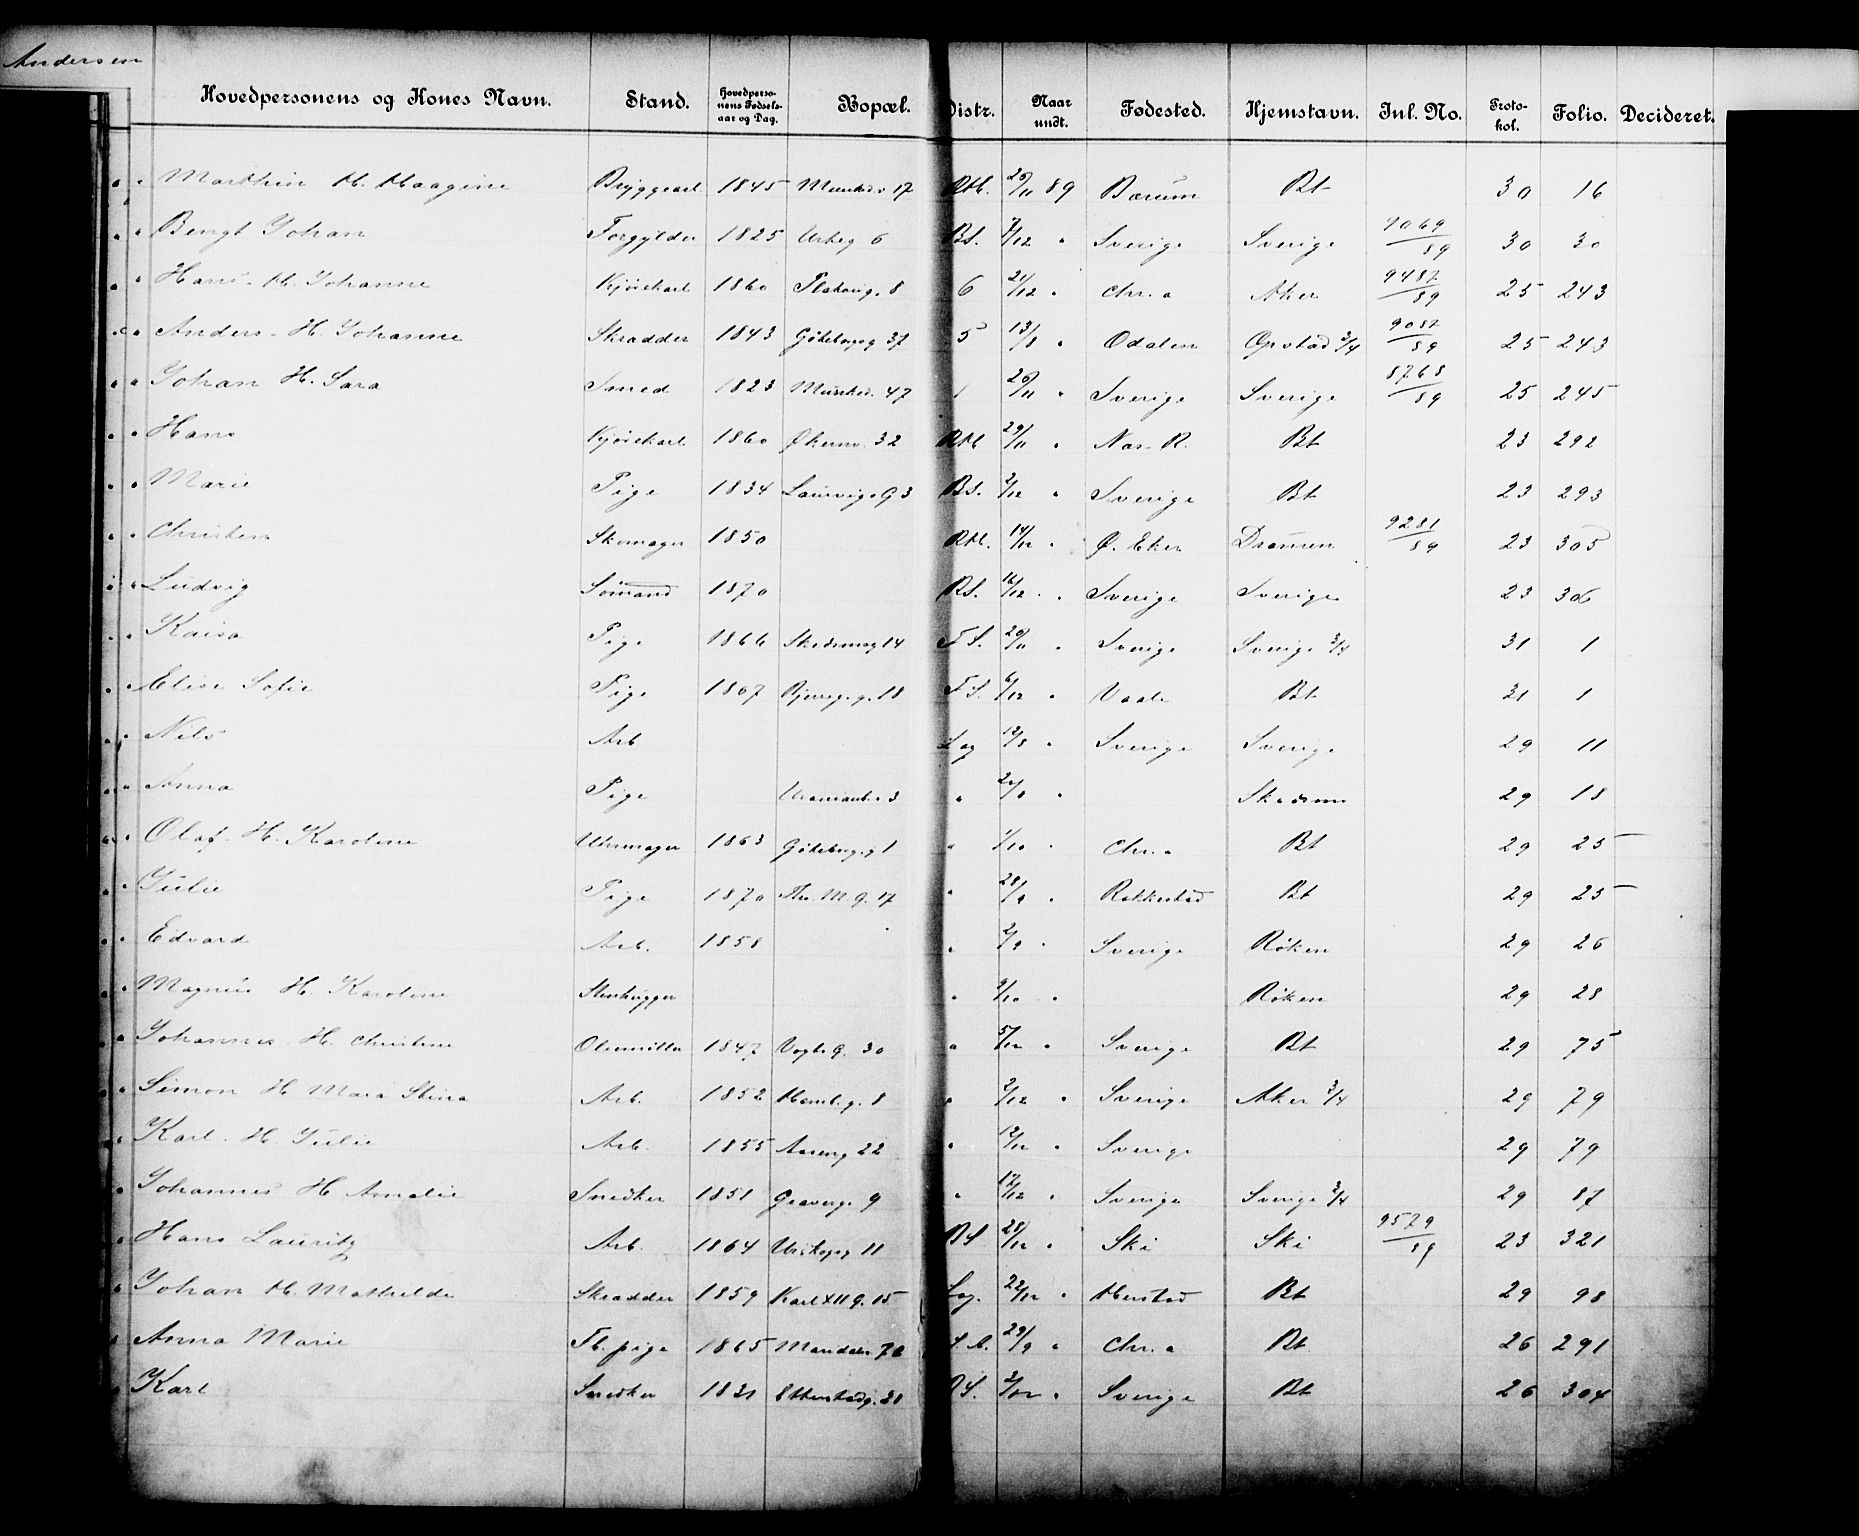 Andersen
Hovedpersonens og Kones Navn. Stand. Hovedperso-nens Fødsels-aar og Dag. Bopæl. Distr. Naar undt. Fødested. Hjemstavn. Inl. No. Proto-kol. Folio. Decideret.
Marthin H. Haagine Bryggearb 1845 17 Rtb. 20/11 89 Bærum Bt 30 16
Bengt Johan Forgylder 1825 6 BS. /12 " Sverige Sverige 89 30 30
Hans. H. Johanne Kjørekarl 1860 8 6 21/12 " Chr.a Aker 9487/89 25 243
Anders. H. Johanne Skrædder 1843 Göteborgg 37 5 13/8 " Odalen Opstad 3/4 9087/89 25 243
Johan H. Sara Smed 1823 47 1 20/11 " Sverige Sverige 8768/89 25 245
Hans Kjørekarl 1860 Økernv. 32 Rtb 29/11 " Næs. R. Bt 23 292
Marie Pige 1834 Laurvigsg 3 BS. 3/12 " Sverige Bt 23 293
Christen Skomager 1850 Rtb. 14/12 " Ø. Eker Dramen 9281/89 23 305
Ludvig Sömand 1870 RS. 16/12 " Sverige Sverige 23 306
Kaisa Pige 1866 Skedsmog 14 FS. 20/11 " Sverige Sverige 3/4 31 1
Elise Sofie Pige 1867 18 FS. 6/12 " Vaale Bt 31 1
Nils Arb Log 12/8 " Sverige Sverige 29 11
Anna Pige 3 " " Skedsmo 29 18
Olaf. H. Karoline Uhrmager 1863 Göteborg.g 1 " 1/10 " Chr.a Bt 29 25
Julie Pige 1870 Thv. M. G. 17 " " Rakkestad Bt 29 25
Edvard Arb. 1858 " 2/9 " Sverige Röken 29 26
Magnus H. Karoline Stenhugger " 9/10 " Röken 29 28
Johannes. H. Christine 1847 Vogts G. 30 " 5/12 " Sverige Bt 29 75
Simon H Maria Stina Arb. 1852 g. 8 " 3/12 " Sverige Aker 3/4 29 79
Karl. H. Julie Arb. 1855 22 " 12/12 " Sverige 29 79
Johannes H Amalie Snedker 1851 9 " 17/12 " Sverige Sverige 3/4 29 87
Hans Lauritz Arb. 1864 11 BS 28/12 " Ski Ski 9579/89 23 321
Johan H. Mathilde Skrædder 1859 Karl XII G. 15 Log. 22/12 " Bt 29 98
Anna Marie Fb. pige 1865 29/9 " Chr.a Bt 26 291
Karl Snedker 1831 28 2/12 " Sverige Bt 26 304